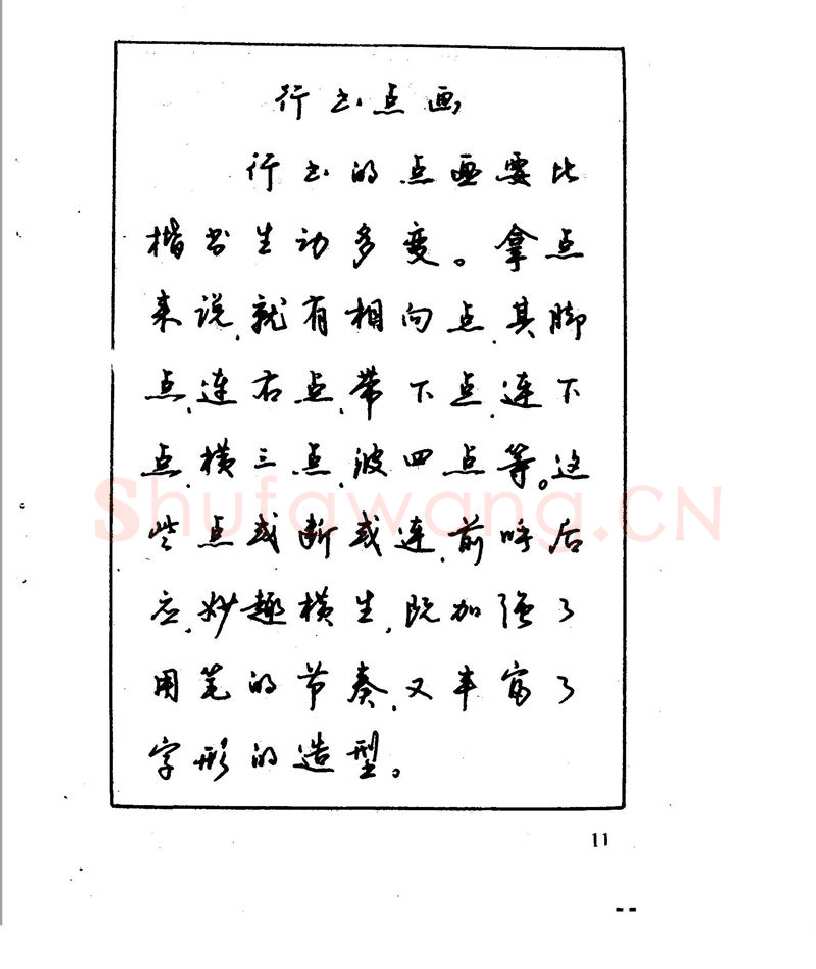 行书点画
行书的点画要比
楷书生动多变。拿点
来说,就有相向点,其脚
点,连右点,带下点,连下
点,横三点,波四点等。这
些点或断或连,前呼后
应,妙趣横生,既加强了
用笔的节奏,又丰富了
字形的造型。
Shufawang.CN
11